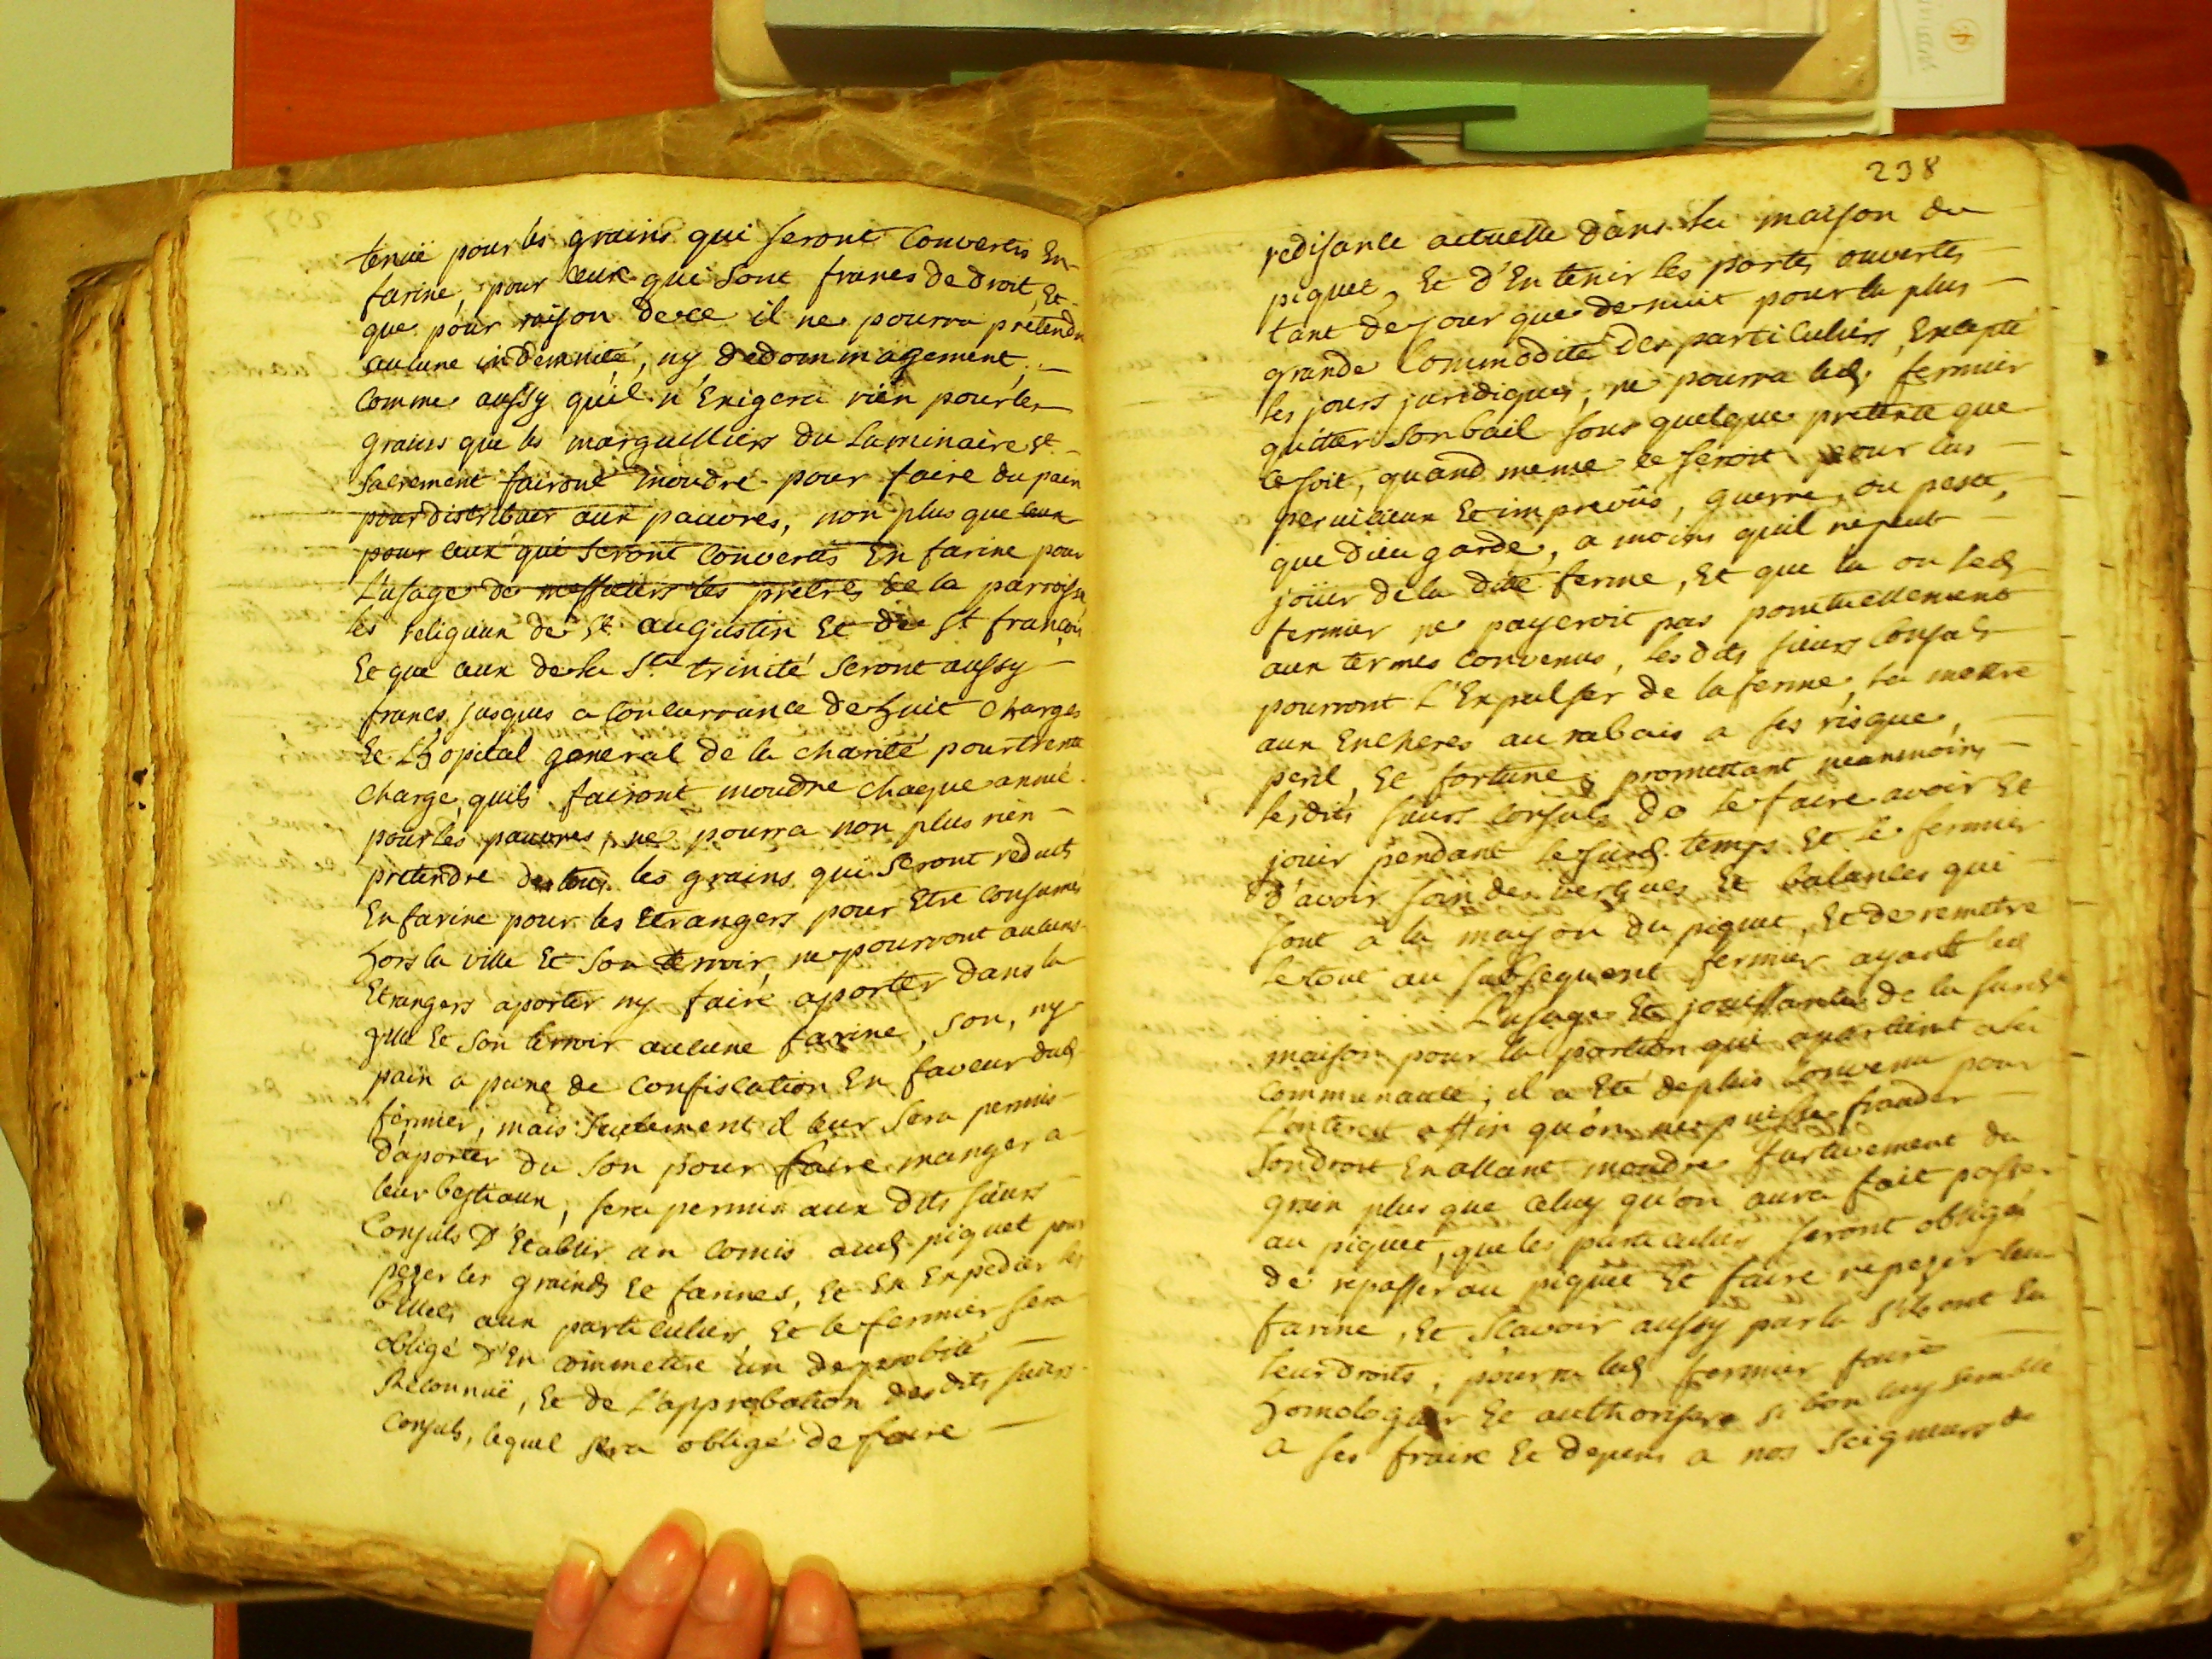 tenuë pour les grains qui seront Convertis En
farine, pour ceux qui sont francs de droit, Et
que pour raison de ce il ne pourra prétendre
aucune indemnité, ny dedommagement,
Comme aussy qu'il n'Exigera rien pour les
grains que les marguilliers du Luminaire St
Sacrement fairont moudre pour faire du pain
pour distribuer aux pauvres, non plus que
pour ceux qui seront Convertis En farine pour
L'usage de messieurs les pretres de la parroisse
les religieux de St augustin Et de St françois
Et que ceux de la Ste trinité seront aussy
francs jusques a Concurrance de huit Charges
Et Lhopital general de la charité pour trente
Charge, quils fairont moudre chaque année
pour les pauvres, ne pourra non plus rien
pretendre de tous les grains qui seront reduits
En farine pour les Etrangers pour Etre Consumés
hors la ville Et son terroir, ne pourront aucuns
Etrangers aporter ny faire aporter dans la
ville Et son terroir aucune farine, son, ny
pain a peine de Confiscation En faveur dud
fermier, mais seulement il leur sera permis
d'aporter du son pour faire manger a
leur bestiaux, sera permis aux dits sieurs
Consuls D'Etablir un Comis aud piquet pour
pezer les grainds Et farines, Et En Expedier les
billets aux particuliers Et le fermier sera
obligé D'En commettre un de probité
Reconnuë, Et de L'approbation des dits sieurs
Consuls, lequel sera obligé de faire
238
redisance actuelle dans la maison du
piquet, Et d'En tenir les portes ouvertes
tant de jour que de nuit pour la plus
grande Commodité des particuliers, Excepté
les jours juridiques, ne pourra led fermier
quitter son bail sous quelque pretexte que
ce soit, quand meme ce seroit pour cas
pernicieux Et imprevûs, guerre, ou peste,
que dieu garde, a moins quil ne peut
joüir de la dite ferme, Et que la ou led
fermier ne payeroit pas ponctuellement
aux termes Convenus, lesdits sieurs Consuls
pourront L'Expulser de la ferme, la mettre
aux Encheres au rabais a ses risque,
peril, Et fortune, promettant neanmoins
lesdits sieurs Consuls de le faire avoir Et
jouir pendant le susd. temps Et le fermier
d'avoir soin des vergues Et balances qui
sont a la mayson du piquet, Et de remettre
le tout au subsequent fermier ayant led
L'usage Et jouissance de la susd
maison pour la portion qui apartient a la
Communauté; il a Eté deplus Convenu pour
L'interest affin qu'on ne puisse frauder
son droit En allant moudre furtivement du
grain plus que celuy qu'on aura fait passer
au piquet, que les particuliers seront obligés
de repasser au piquet Et faire repezer leur
farine, Et scavoir aussy par la s'ils ont En
leur droits; pourra led fermier faire
homologuer Et authoriser si bon luy semble
a ses fraix Et depens a nos seigneurs de